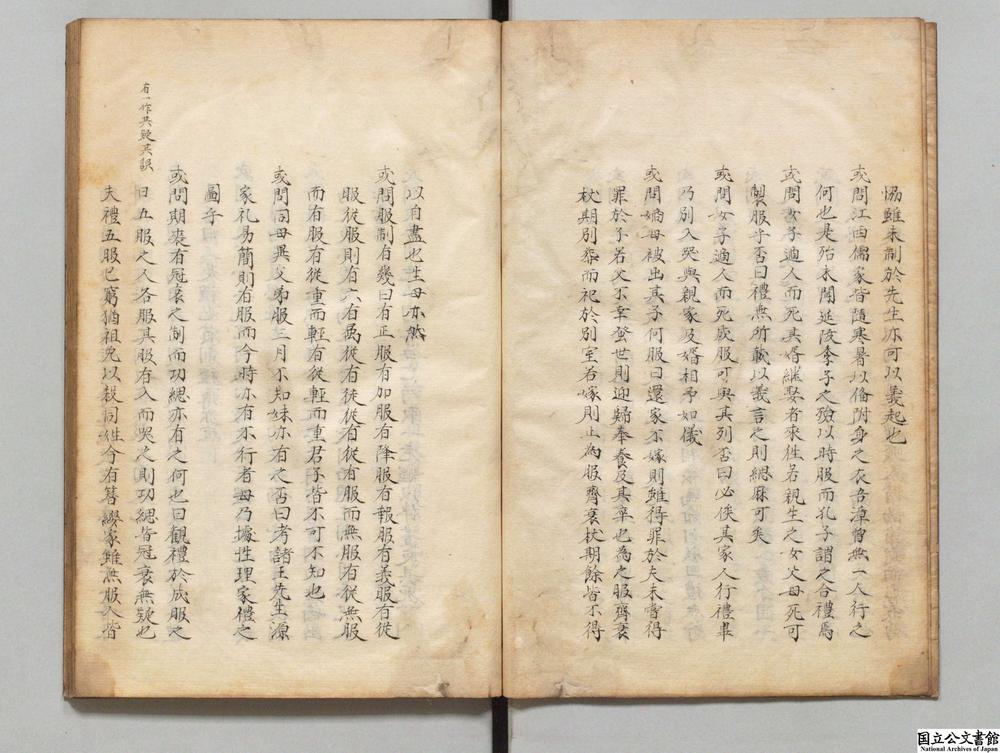 惕雖未制於先生亦可以義起也
或問江西儒家皆隨寒暑以倫附身之衣吾漳曾無一人行之
何也是殆未聞延陵季子之殮以時服而孔子謂之合禮焉
或問女子適人而死其婿繼娶者來往若親生之女父母死可
製服乎否曰禮無所載以義言之則緦麻可矣
或問女子適人而死成服可與其列否曰必俟其家人行禮畢
乃別入哭與親家及婿相弔如儀
或問嫡母被出其子何服曰還家不嫁則雖得罪於夫未嘗得
罪於子若父不幸蚤世則迎歸奉養及其卒也為之服齊衰
杖期別葬而祀於別室若嫁則止為服齊衰杖期餘皆不得
以自盡也生母亦然
或問服制有幾曰有正服有加服有降服有報服有義服有從
服從服則有六有屬從有徒從有從有服而無服有從無服
而有服有從重而輕有從輕而重君子皆不可不知也
或問同母異父弟服三月不知妹亦有之否曰考諸王先生源
家礼易簡則有服而今時亦有不行者毋乃據性理家禮之
圖乎
或問期衰有冠衰之制而功緦亦有之何也曰觀禮於成服之
日五服之人各服其服有入而哭之則功緦皆冠衰無疑也
夫禮五服已窮猶袒免以殺同姓今有簪纓家雖無服人皆
有一作共疑其誤
国立公文書館
National Archives of Japan